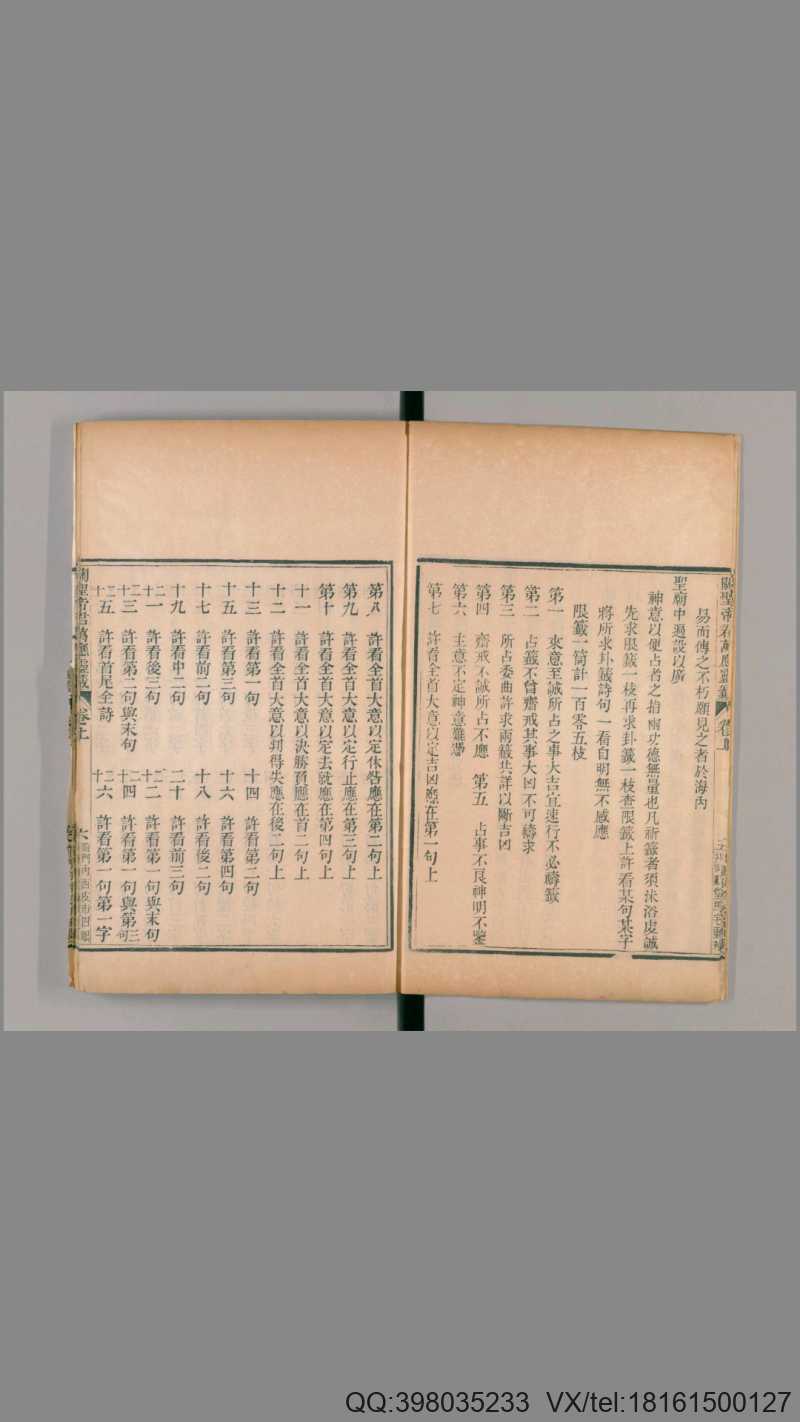 關聖帝君萬應靈籤 卷上
易而傳之不朽願見之者於海內
聖廟中遍設以廣
神意以便占者之指南功德無量也凡祈籤者須沐浴虔誠
先求限籤一枝再求卦籤一枝查限籤上許看某句某字
將所求卦籤詩句一看自明無不感應
限籤一筒計一百零五枝
第一 來意至誠所占之事大吉宜速行不必禱籤
第二 占籤不曾齋戒其事大凶不可禱求
第三 所占委曲許求兩籤共詳以斷吉凶
第四 齋戒不誠所占不應 第五 占事不良神明不鑒
第六 主意不定神意難憑
第七 許看全首大意以定吉凶應在第一句上
第八 許看全首大意以定休咎應在第二句上
第九 許看全首大意以定行止應在第三句上
第十 許看全首大意以定去就應在第四句上
十一 許看全首大意以決勝負應在首二句上
十二 許看全首大意以判得失應在後二句上
十三 許看第一句 十四 許看第二句
十五 許看第三句 十六 許看第四句
十七 許看前二句 十八 許看後二句
十九 許看中二句 二十 許看前三句
二十一 許看後三句 二十二 許看第一句與末句
二十三 許看第二句與末句 二十四 許看第一句與第三句
二十五 許看首尾全詩 二十六 許看第一句第一字
關聖帝君萬應靈籤 卷上 六
QQ:398035233 VX/tel:18161500127